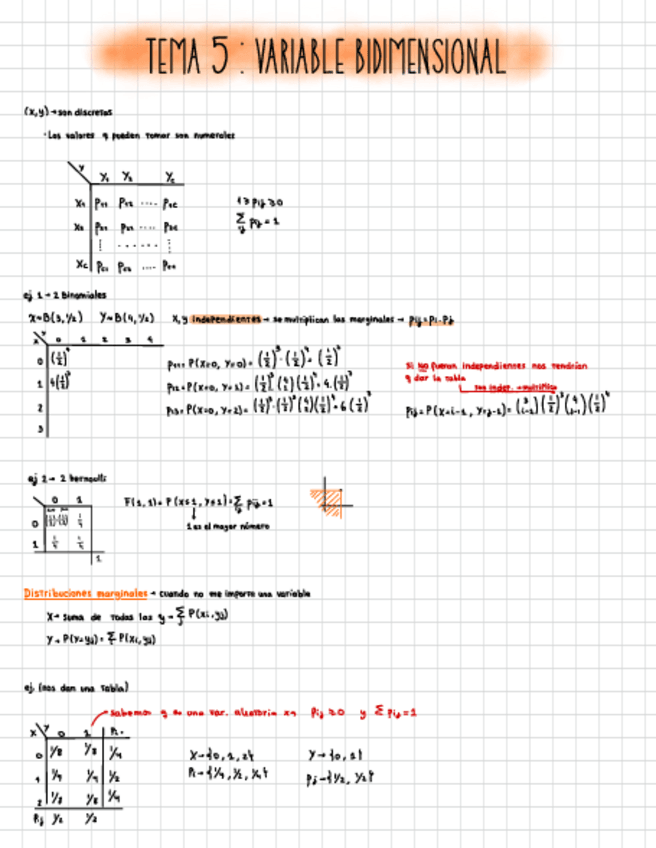 TEMA 5 : VARIABLE BIDIMENSIONAL
(x,y) → son discretas
· Los valores q pueden tomar son numerales
Y
Y₁ Y₂ Yc
X₁ P₁₁ P₁₂ .... P₁c
X₂ P₂₁ P₂₂ .... P₂c
1 ≥ pij ≥ 0
Σ pij = 1
ej 1 → 2 Binomiales
X~B(3,1/2) Y~B(4,1/2) X,y independientes → se multiplican las marginales → pij=pi·pj
x y 0 1 2 3 4
0 (1/2)⁷
1 4(1/2)⁷
2
3
p₁₁ = P(x=0, y=0) = (1/2)³·(1/2)⁴ = (1/2)⁷
p₁₂ = P(x=0, y=1) = (1/2)³(4 1)(1/2)⁴ = 4·(1/2)⁷
p₁₃ = P(x=0, y=2) = (1/2)³·(1/2)⁴(4 2) = 6(1/2)⁷
Si NO fueran independientes nos tendrían
q dar la tabla
son indep. → multiplico
pij = P(x=i-1, y=j-1) = (3 i-1)(1/2)³(4 j-1)(1/2)⁴
ej 2 → 2 bernoulli
0 1
0 1/4
1 1/4 1/4
1
F(1,1) = P(x≤1, y≤1) = Σ pij = 1
1 es el mayor número
Distribuciones marginales → cuando no me importa una variable
X → suma de todas las y → Σ P(xi,yj)
y → P(y=yj) = Σ P(xi,yj)
ej. (nos dan una tabla)
sabemos q es una var. aleatoria xq pij ≥ 0 y Σ pij = 1
x y 0 1 Pi·
0 1/8 1/8 1/4
1 1/4 1/4 1/2
2 1/8 1/8 1/4
Pj 1/2 1/2
X → {0, 1, 2}
Pi → {1/4, 1/2, 1/4}
Y → {0, 1}
Pj → {1/2, 1/2}